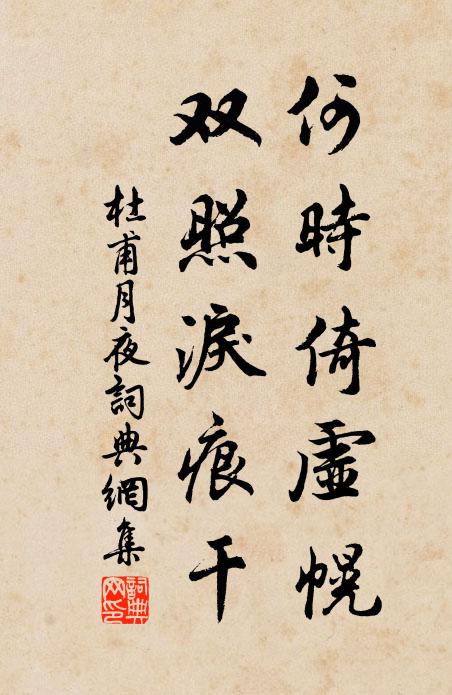 何時倚虛幌
双照淚痕干
杜甫月夜詞典網集
詞典网印